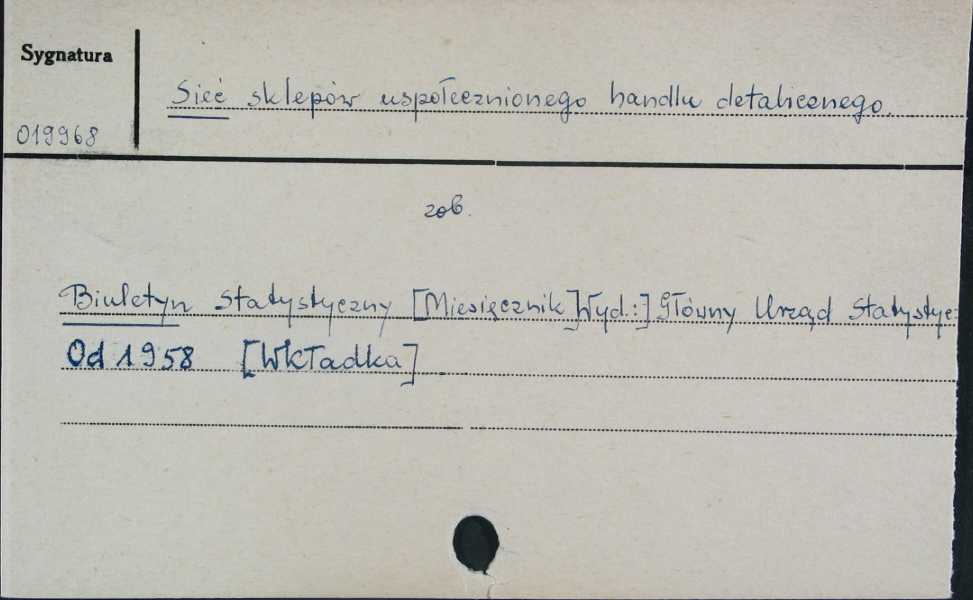 Sygnatura
Sieć sklepów uspołecznionego handlu detalicznego.
019968
zob.
Biuletyn Statystyczny [Miesięcznik] Wyd.:] Główny Urząd Statystyc
Od 1958 [Wkładka]